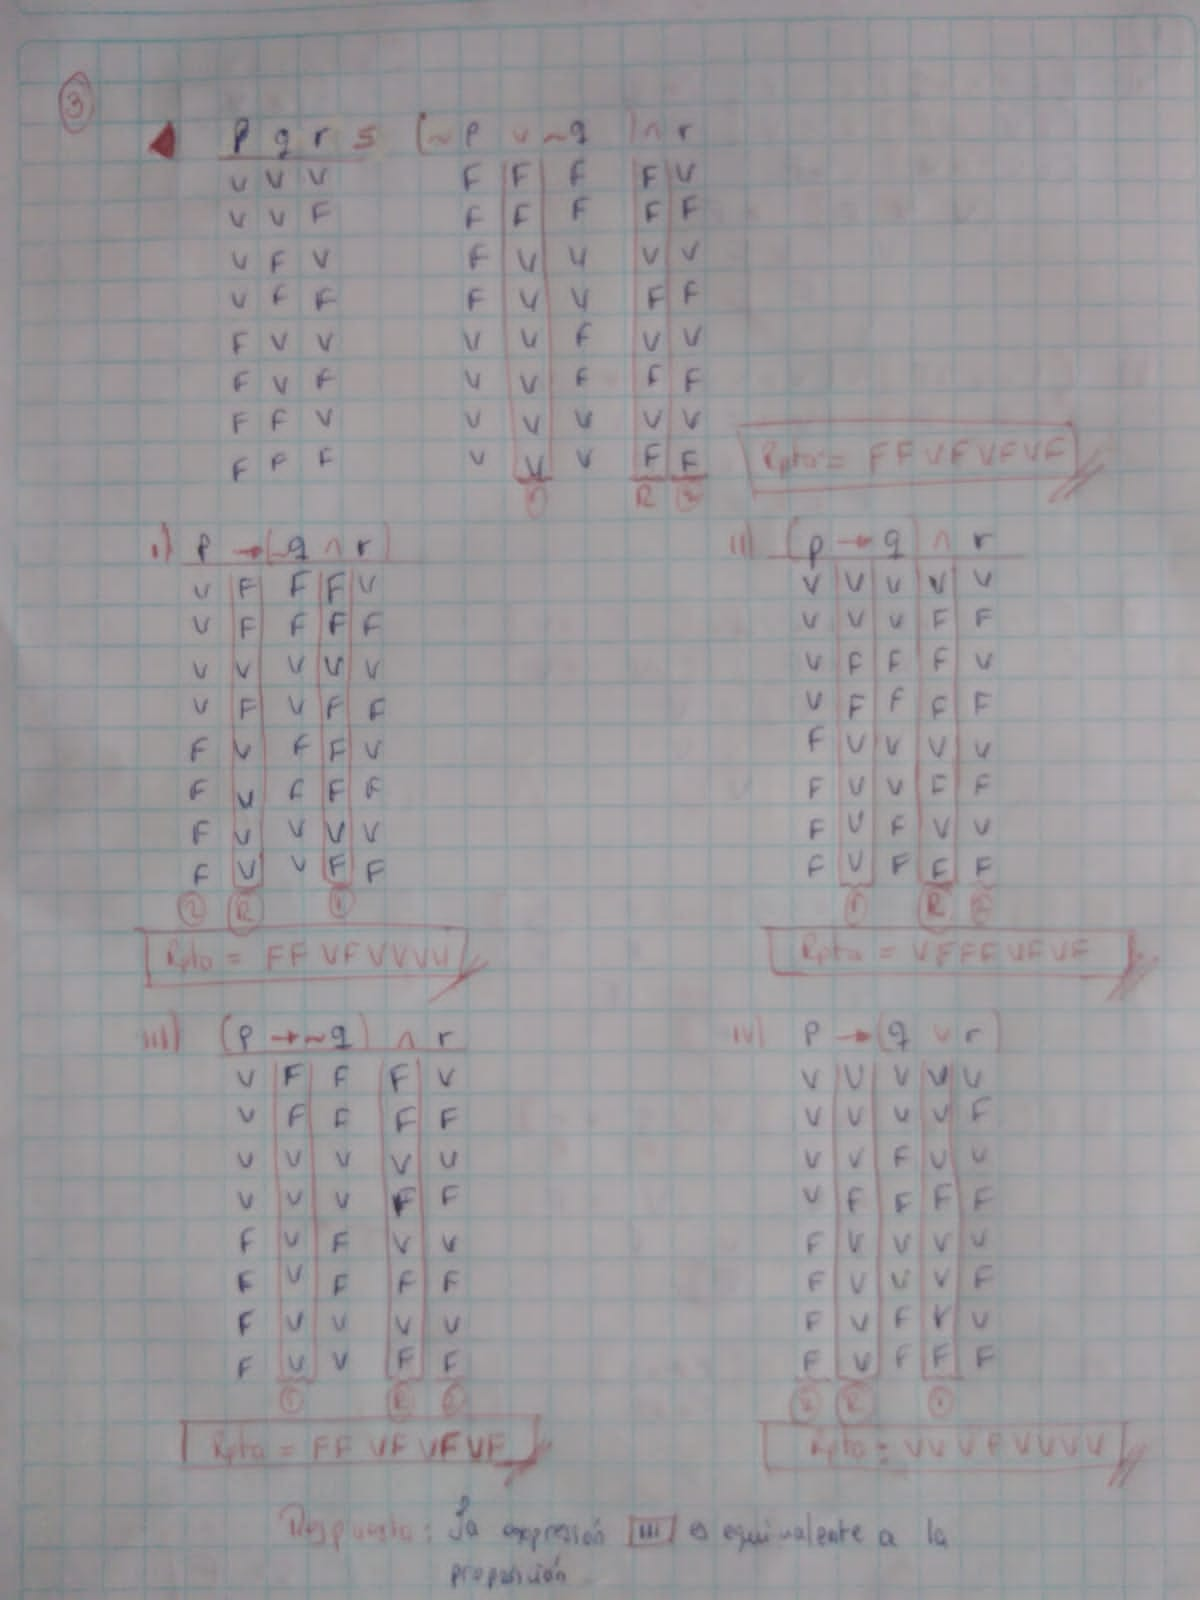 3
p q r s (~p ∨ ~q) ∧ r
V V V F F F F V
V V F F F F F F
V F V F V V V V
V F F F V V F F
F V V V V F V V
F V F V V F F F
F F V V V V V V
F F F V V V F F
1 R 2
Rpta = F F V F V F V F
I) p → (~q ∧ r)
V F F F V
V F F F F
V V V V V
V F V F F
F V F F V
F V F F F
F V V V V
F V V F F
2 R 1
Rpta = F F V F V V V V
II) (p → q) ∧ r
V V V V V
V V V F F
V F F F V
V F F F F
F V V V V
F V V F F
F V F V V
F V F F F
1 R 2
Rpta = V F F F V F V F
III) (p → ~q) ∧ r
V F F F V
V F F F F
V V V V V
V V V F F
F V F V V
F V F F F
F V V V V
F V V F F
1 R 2
Rpta = F F V F V F V F
IV) p → (q ∨ r)
V V V V V
V V V V F
V V F V V
V F F F F
F V V V V
F V V V F
F V F V V
F V F F F
2 R 1
Rpta = V V V F V V V V
Respuesta: La expresión III es equivalente a la
proposición